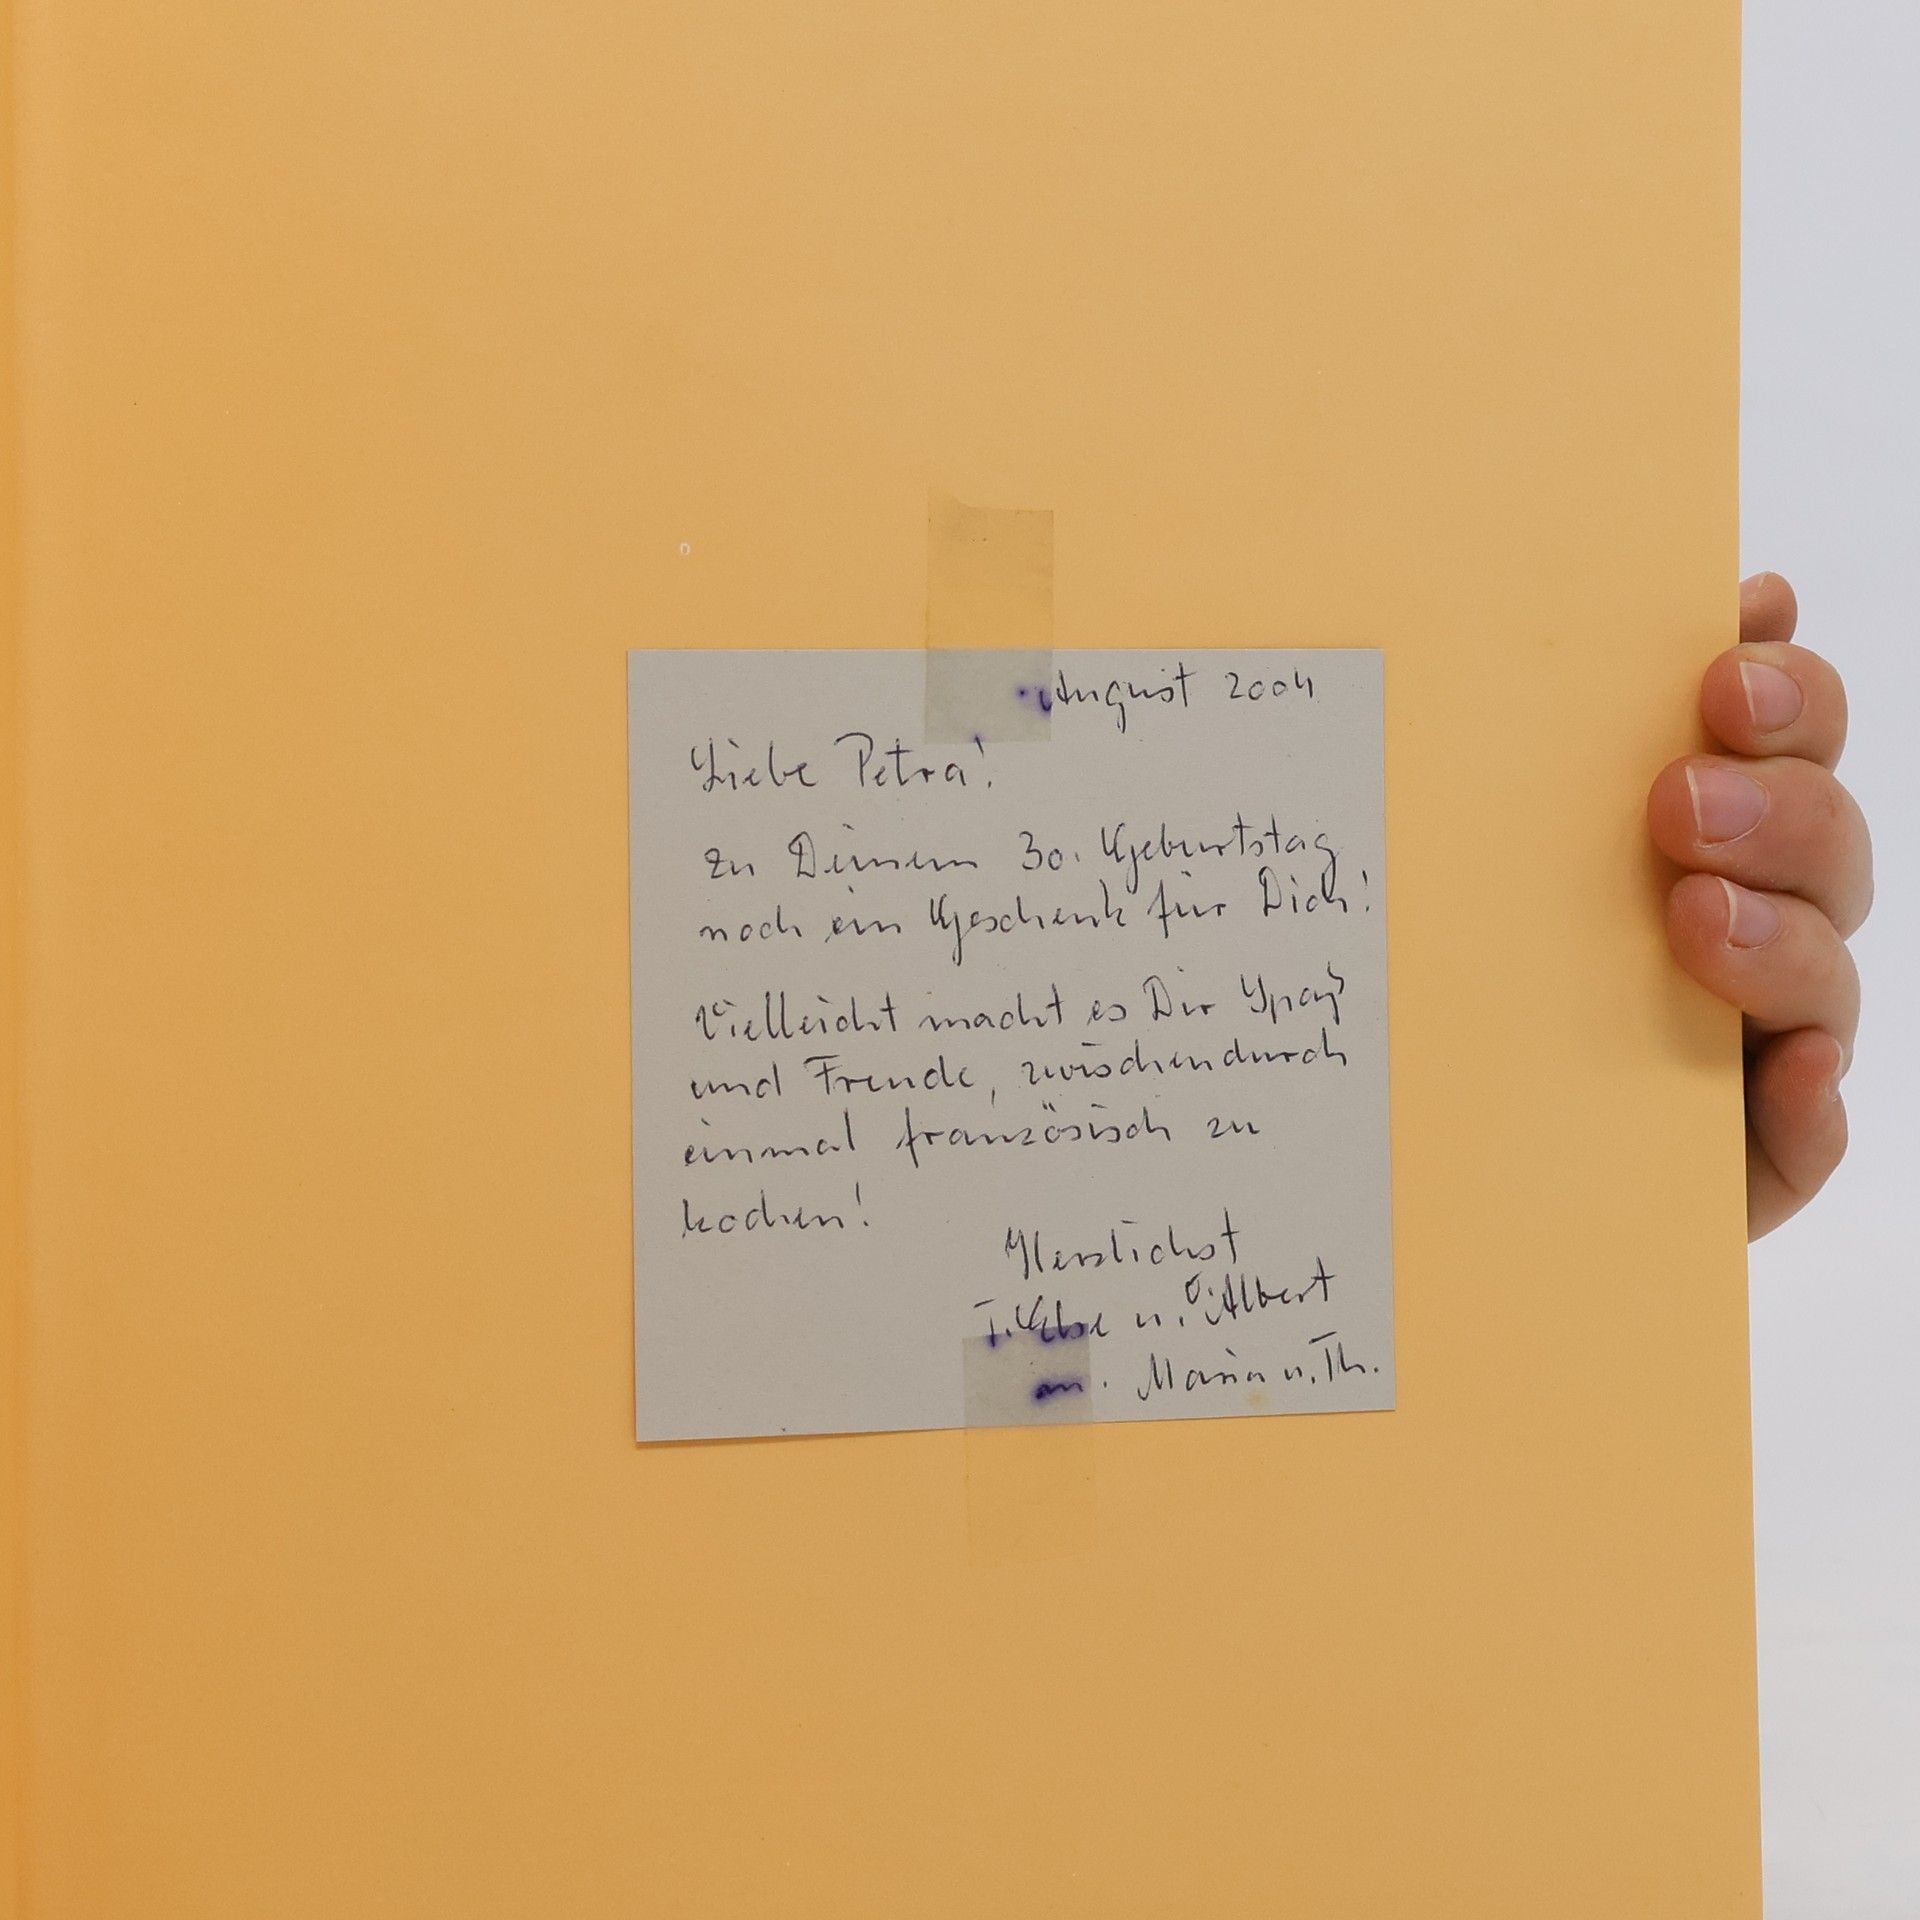 August 2004
Liebe Petra!
zu Deinem 30. Geburtstag
noch ein Geschenk für Dich!
Vielleicht macht es Dir Spaß
und Freude, zwischendurch
einmal französisch zu
kochen!
Herzlichst
T. Else u. O. Albert
Maria u. Th.